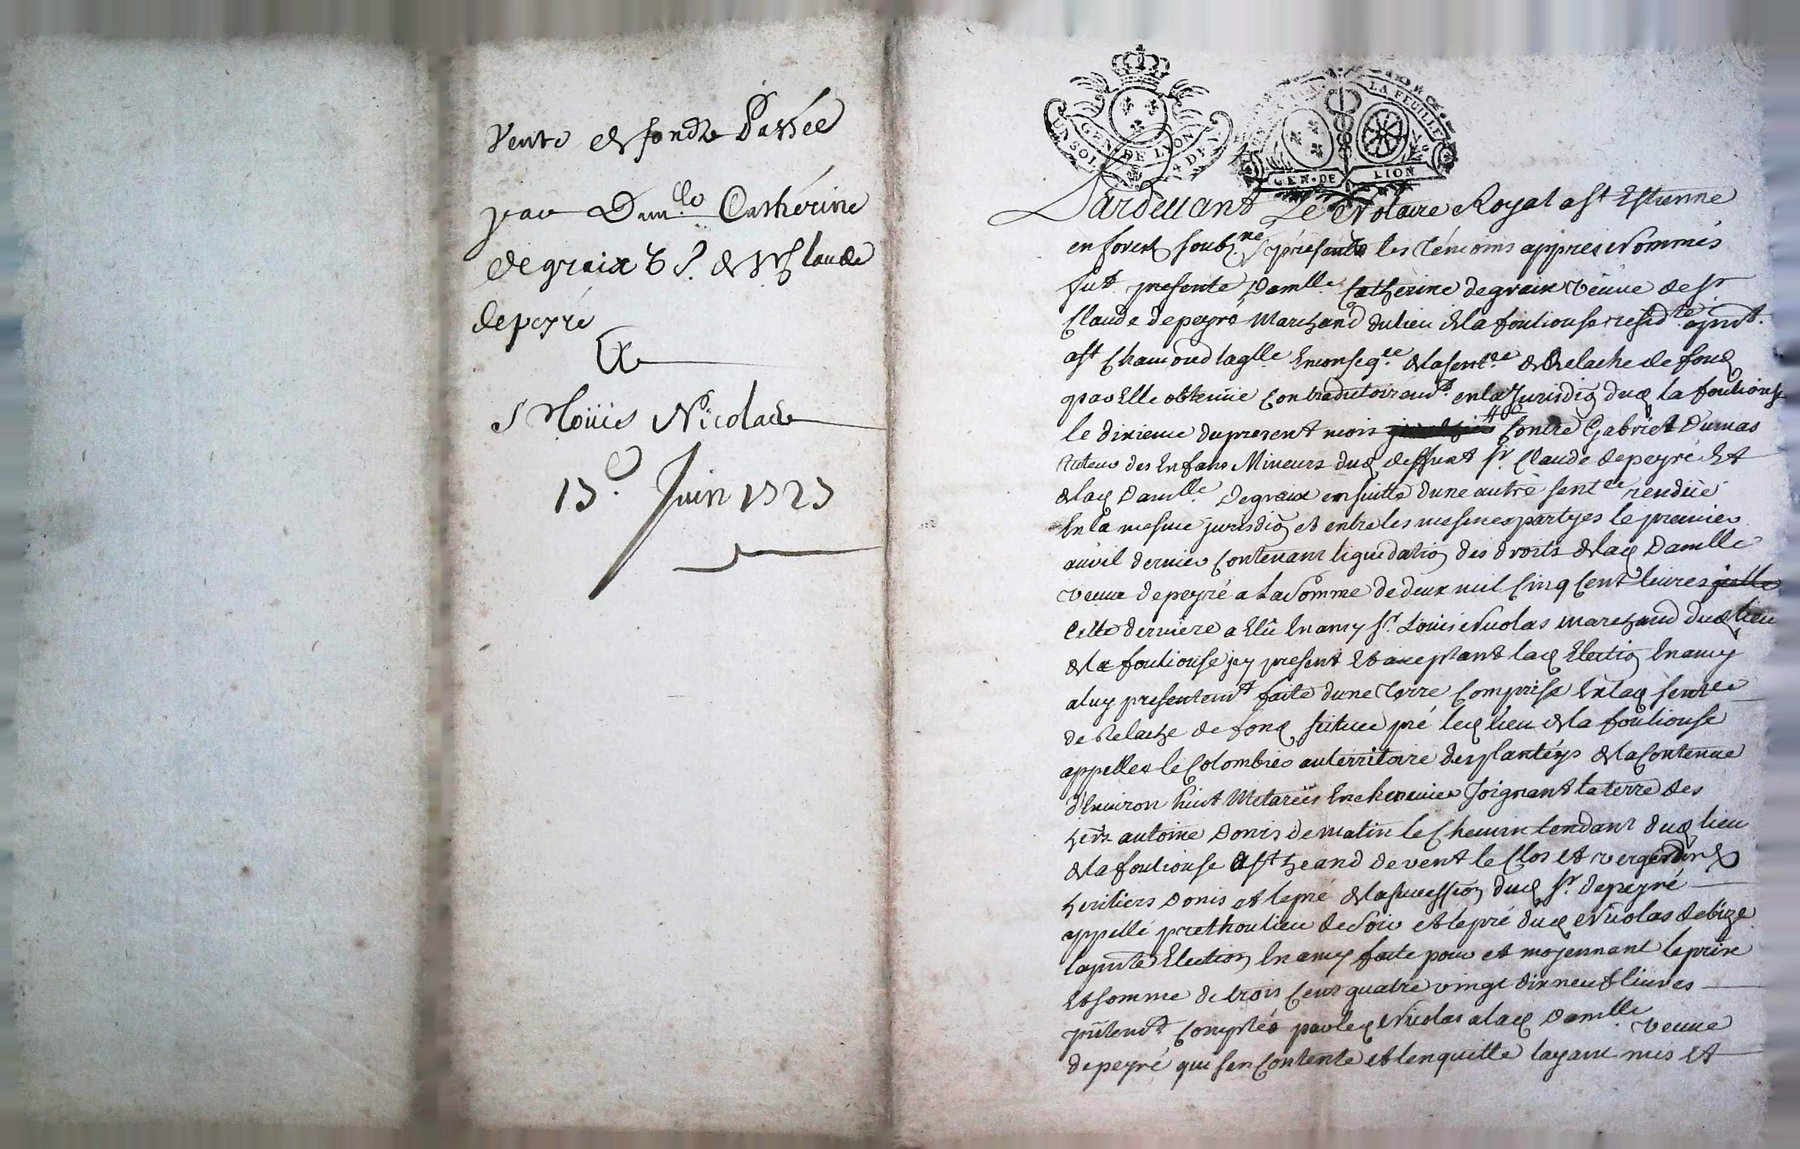 Vente de fondz Passée
par Damlle Catherine
degraix Ve. de Sr Claude
depeyré
A
Sr Loüis Nicolas
15e. Juin 1725
UN SOL GEN. DE LYON 4 DEN
LA FEUILLE
GEN. DE LION
Pardevant Le Notaire Royal a St Estienne
en forest soubzne. & presents les témoins appres nommés
fut presente Damlle Catherine degraix veuve de Sr
Claude depeyré Marchand du lieu de la fouliouse residte. a pnt.
a St Chamond laqlle En conseqce de la sentce de Relache de fond
qu'avElle obtenüe Contradictoiremt. en la Jurisdion dud la fouliouse
le dixieme du present mois Contre Gabriel Dumas
tuteur des Enfans Mineurs dud deffunt Sr. Claude depeyré Et
de lad Damlle Degraix en suitte d'une autre sentce rendüe
En la mesme jurisdion et entre les mesmes partyes le premier
avril dernier Contenant liquidation des droits de lad Damlle
veuve depeyré a la Somme de deux mil Cinq Cent livres
Cette derniere a Elû En amy Sr. Louis Nicolas marchand dud lieu
de la fouliouse icy present Et acceptant lad Election En amy
a luy presentemt faite d'une Terre Comprise En lad sentce
de Relache de fond scituée pré led lieu de la fouliouse
appellée le Colombier au territoire des plantéys de la Contenue
d'Environ huit Metarées Joignant la terre des
hers. antoine Donis de matin le Chemin tendant dud lieu
de la fouliouse a St heand de vent le Clos Et verger des
heritiers Donis et le pré de la succession dud Sr. depeyré
appellé de soir et le pré dud Nicolas de bize
la pnte Election En amy faite pour et moyennant le prix
Et somme de trois Cent quatre vingt dix neuf livres
pntemt. Comptés par led Nicolas a lad Damlle veuve
depeyré qui s'en Contente et l'en quitte l'ayant mis Et